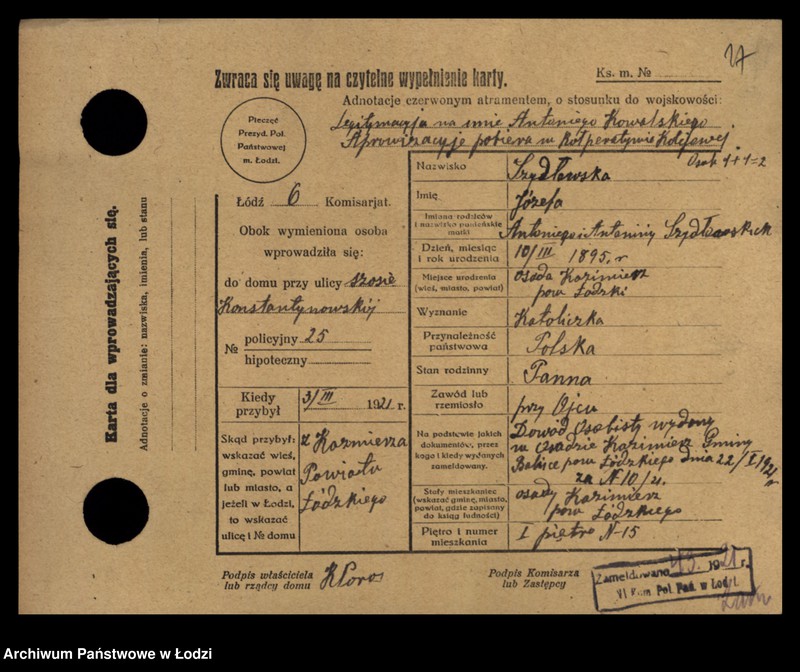 27
Zwraca się uwagę na czytelne wypełnienie karty.
Ks. m. №
Adnotacje czerwonym atramentem, o stosunku do wojskowości:
Legitymacja na imie Antoniego Kowalskiego
Aprowizacyje pobiera w Kolejowej
Osób 1+1=2
Pieczęć
Prezyd. Pol.
Państwowej
m. Łodzi.
Łódź 6 Komisarjat.
Obok wymieniona osoba
wprowadziła się:
do domu przy ulicy szosie
Konstantynowskij
№ policyjny 25
hipoteczny
Kiedy przybył 3/III 1921 r.
Skąd przybył:
wskazać wieś,
gminę, powiat
lub miasto, a
jeżeli w Łodzi,
to wskazać
ulicę i № domu
z Kazmierza
Powiatu
Łódzkiego
Nazwisko Szydłowska
Imię Józefa
Imiona rodziców
i nazwisko panieńskie
matki
Antoniego i Antoniny
Dzień, miesiąc
i rok urodzenia
10/III 1895 r
Miejsce urodzenia
(wieś, miasto, powiat)
osada Kazimierz
pow Łódzki
Wyznanie Katoliczka
Przynależność
państwowa
Polska
Stan rodzinny Panna
Zawód lub
rzemiosło
przy Ojcu
Na podstawie jakich
dokumentów, przez
kogo i kiedy wydanych
zameldowany.
Dowód Osobisty wydany
w Osadzie Kazimierz Gminy
Babice pow Łódzkiego dnia 22/I 1921 r
za N 10/21.
Stały mieszkaniec
(wskazać gminę, miasto,
powiat, gdzie zapisany
do ksiąg ludności)
osady Kazimierz
pow Łódzkiego
Piętro i numer
mieszkania
I piętro N 15
Podpis właściciela
lub rządcy domu
Podpis Komisarza
lub Zastępcy
Zameldowano 1921 r.
VI Kom. Pol. Pań. w Łodzi.
Karta dla wprowadzających się.
Adnotacje o zmianie: nazwiska, imienia, lub stanu
Archiwum Państwowe w Łodzi